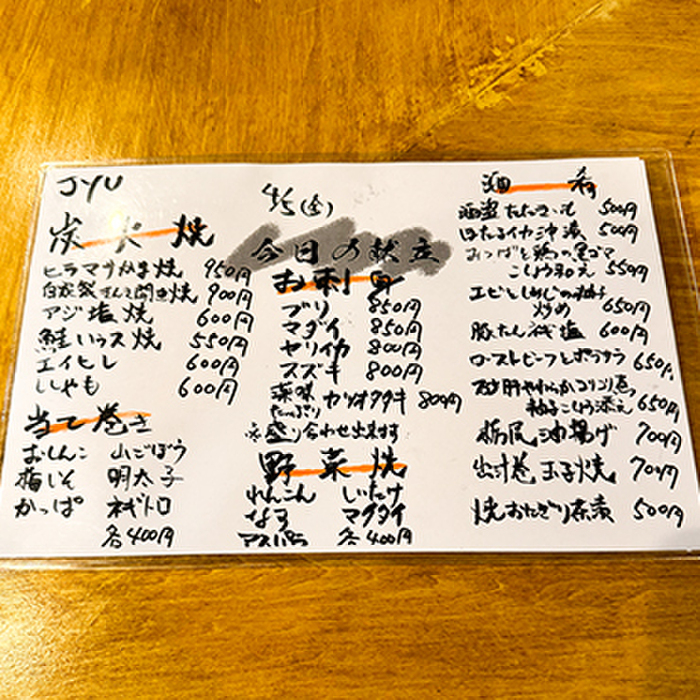 JYU
4/5(金)
今日の献立
炭火焼
ヒラマサかま焼 950円
自家製さんま開き焼 900円
アジ塩焼 600円
鮭ハラス焼 550円
エイヒレ 600円
ししゃも 600円
当て巻き
おしんこ 山ごぼう
梅しそ 明太子
かっぱ ネギトロ
各400円
お刺身
ブリ 850円
マダイ 850円
ヤリイカ 800円
スズキ 800円
薬味たっぷり カツオタタキ 800円
※盛り合わせ出来ます
野菜焼
れんこん しいたけ
なす マグダイ
アスパラ 各400円
酒肴
酒盗たたきっ 500円
ほたるイカ沖漬 500円
おっぱと鶏の黒ゴマ
こしょう和え 550円
エビとしめじの柚子
炒め 650円
豚たんネギ塩 600円
ローストビーフとポテサラ 650円
砂肝やわらかコリコリ煮
柚子こしょう添え 650円
栃尾油揚げ 700円
出汁巻玉子焼 700円
焼おにぎり茶漬 500円